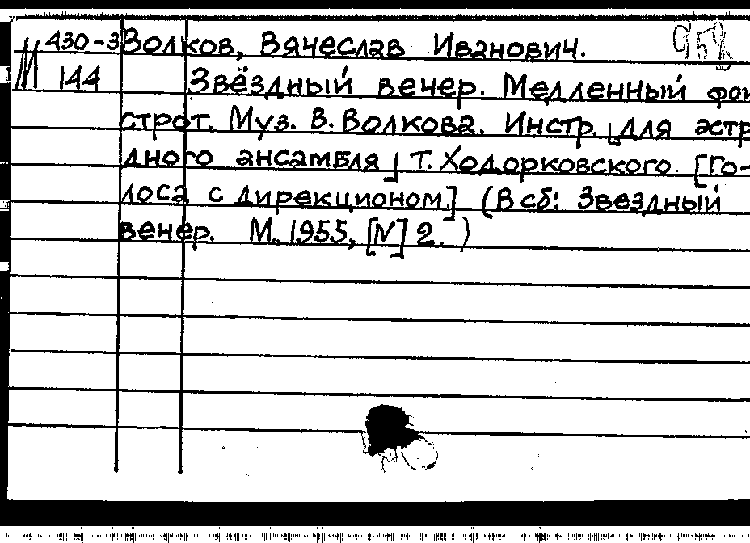 М 430-3 Волков, Вячеслав Иванович. 958
144 Звёздный вечер. Медленный фок
строт. Муз. В. Волкова. Инстр. [для эстр
дного ансамбля] Т. Ходорковского. [Го-
лоса с дирекционом.] (В сб: Звездный
вечер. М. 1955, [N] 2.)